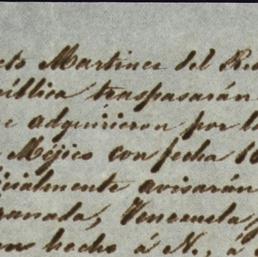 cto Martinez del R
ública traspasarán
e adquirieron por l
Méjico con fecha 1
cialmente avisarán
ranada, Venezuela y
hecho á N., á